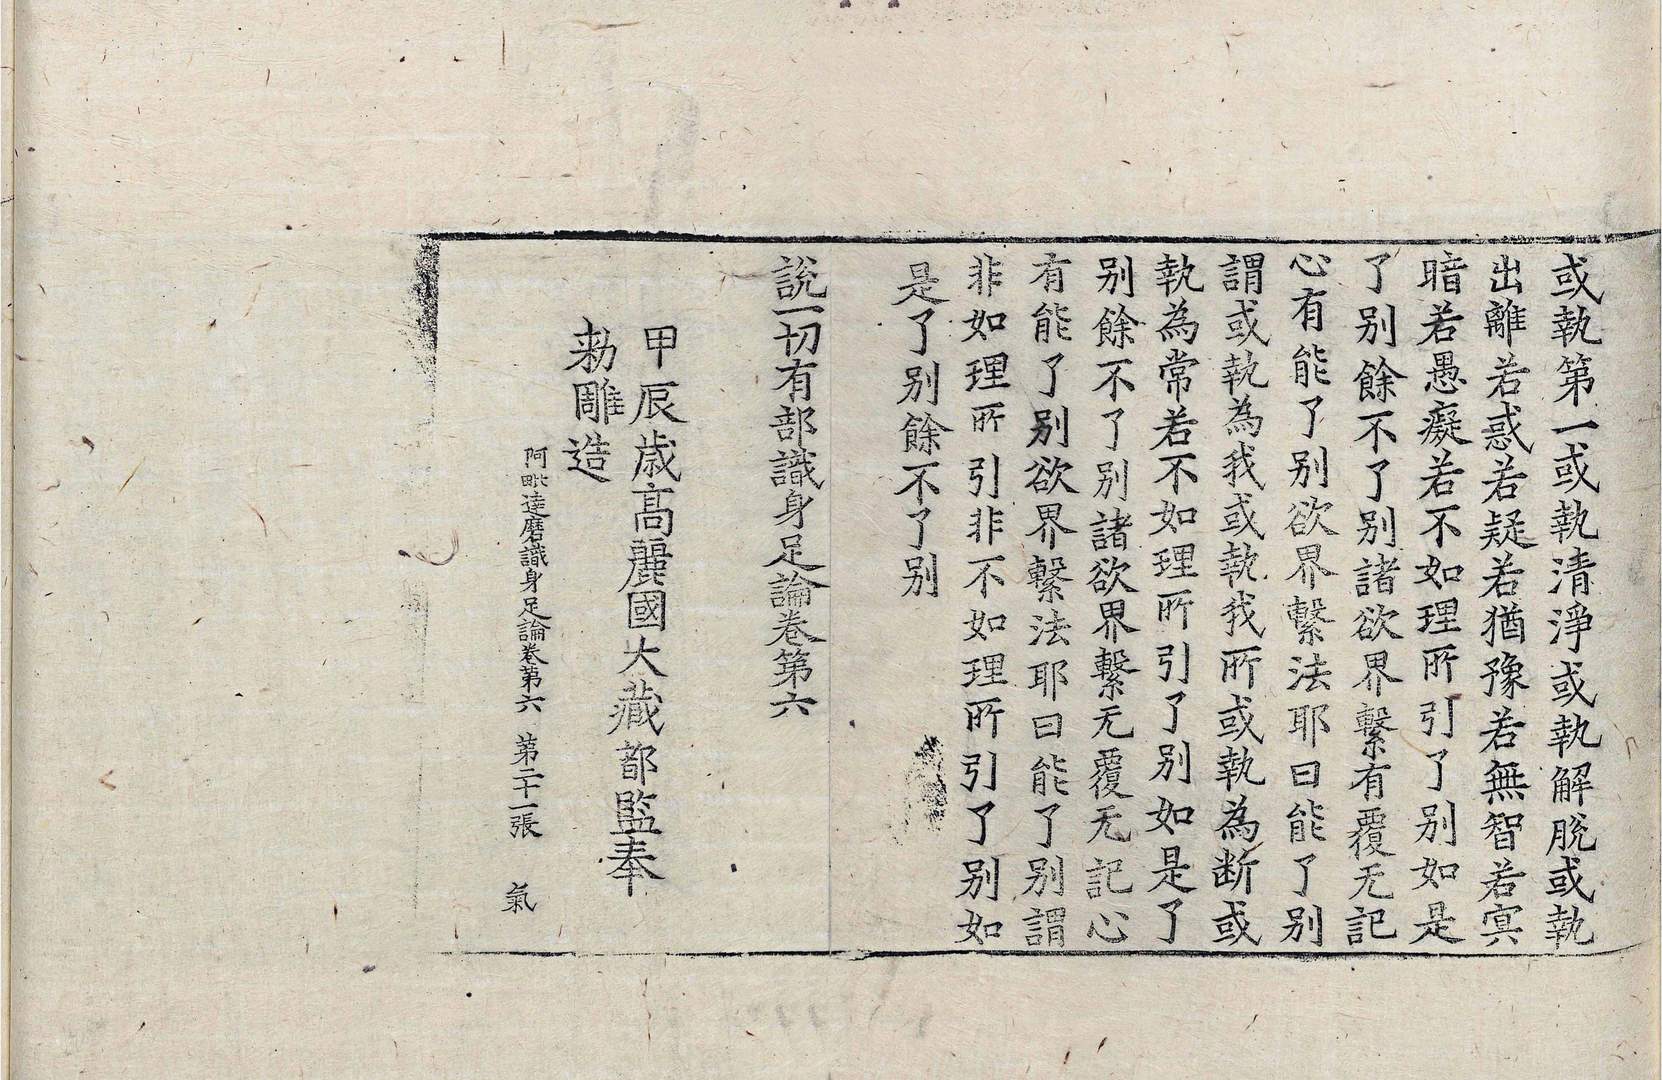 或執第一或執清淨或執解脫或執
出離若惑若疑若猶豫若無智若㝠
暗若愚癡若不如理所引了别如是
了别餘不了别諸欲界繫有覆无記
心有能了别欲界繫法耶曰能了别
謂或執為我或執我所或執為断或
執為常若不如理所引了别如是了
别餘不了别諸欲界繫无覆无記心
有能了别欲界繫法耶曰能了别謂
非如理所引非不如理所引了别如
是了别餘不了别
說一切有部識身足論卷第六
甲辰歳高麗國大藏都監奉
勑雕造
阿毗達磨識身足論卷第六 第二十一張 氣